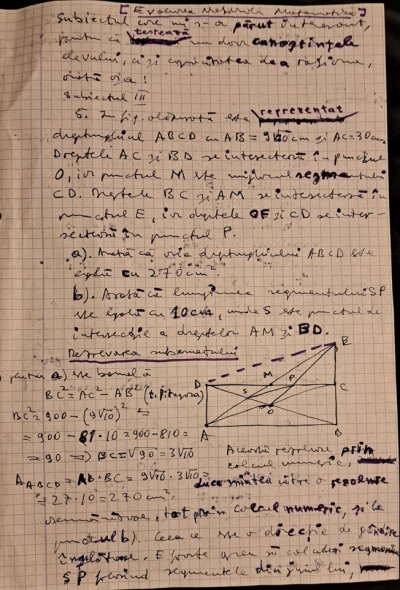 [Evaluarea Națională Matematică]
Subiectul care mi s-a părut interesant,
pentru că testează nu doar cunoștințele
elevului, ci și capacitatea de a raționa,
iată-l:
Subiectul III
5. În fig. alăturată este reprezentat
dreptunghiul ABCD cu AB = 9√10 cm și AC = 30 cm.
Dreptele AC și BD se intersectează în punctul
O, iar punctul M este mijlocul segmentului
CD. Dreptele BC și AM se intersectează în
punctul E, iar dreptele OE și CD se inter-
sectează în punctul P.
a). Arată că aria dreptunghiului ABCD este
egală cu 270 cm².
b). Arată că lungimea segmentului SP
este egală cu 10 cm, unde S este punctul de
intersecție a dreptelor AM și BD.
Rezolvarea subiectului
pentru a) este banală
BC² = AC² - AB² (t. Pitagora)
BC² = 900 - (9√10)² =
= 900 - 81·10 = 900 - 810 =
= 90 => BC = √90 = 3√10
A ABCD = AB·BC = 9√10·3√10 =
= 27·10 = 270 cm².
E
D M C
S P
O
A B
Această rezolvare prin
calcul numeric,
duce mintea către o rezolvare
tot prin calcul numeric, și la
punctul b). Ceea ce este o direcție de gândire
E foarte greu să calculezi segmentul
SP folosind segmentele din jurul lui,